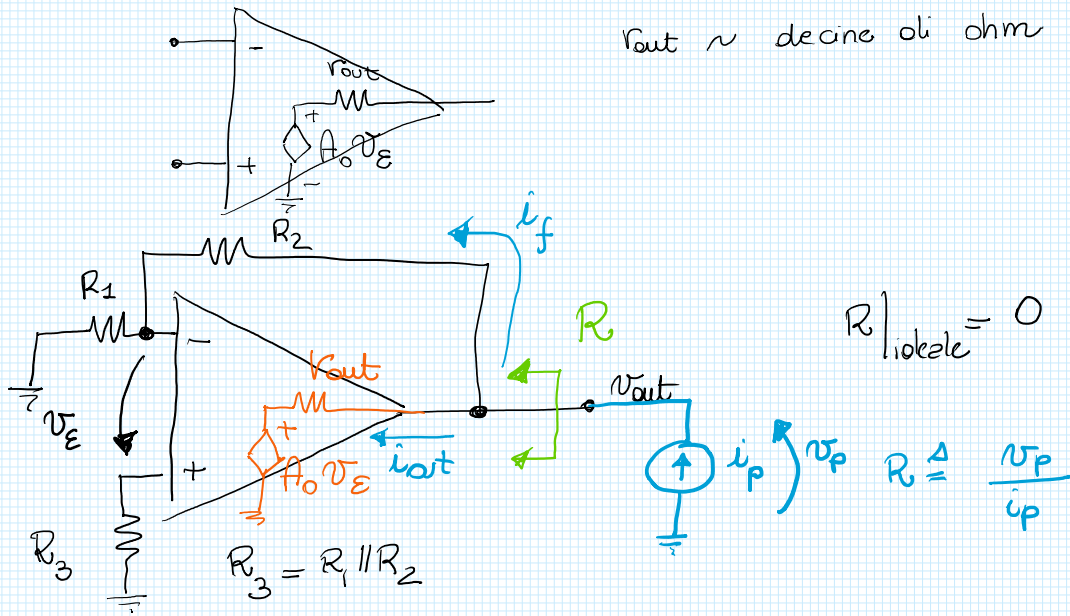 rout ~ decine di ohm
-
rout
+
A₀ vε
+
-
i_f
R₂
R₁
R
R|ideale = 0
-
rout
vout
vε
+
+
A₀ vε
iout
i_p
v_p
R ≜ v_p / i_p
R₃
R₃ = R₁ // R₂